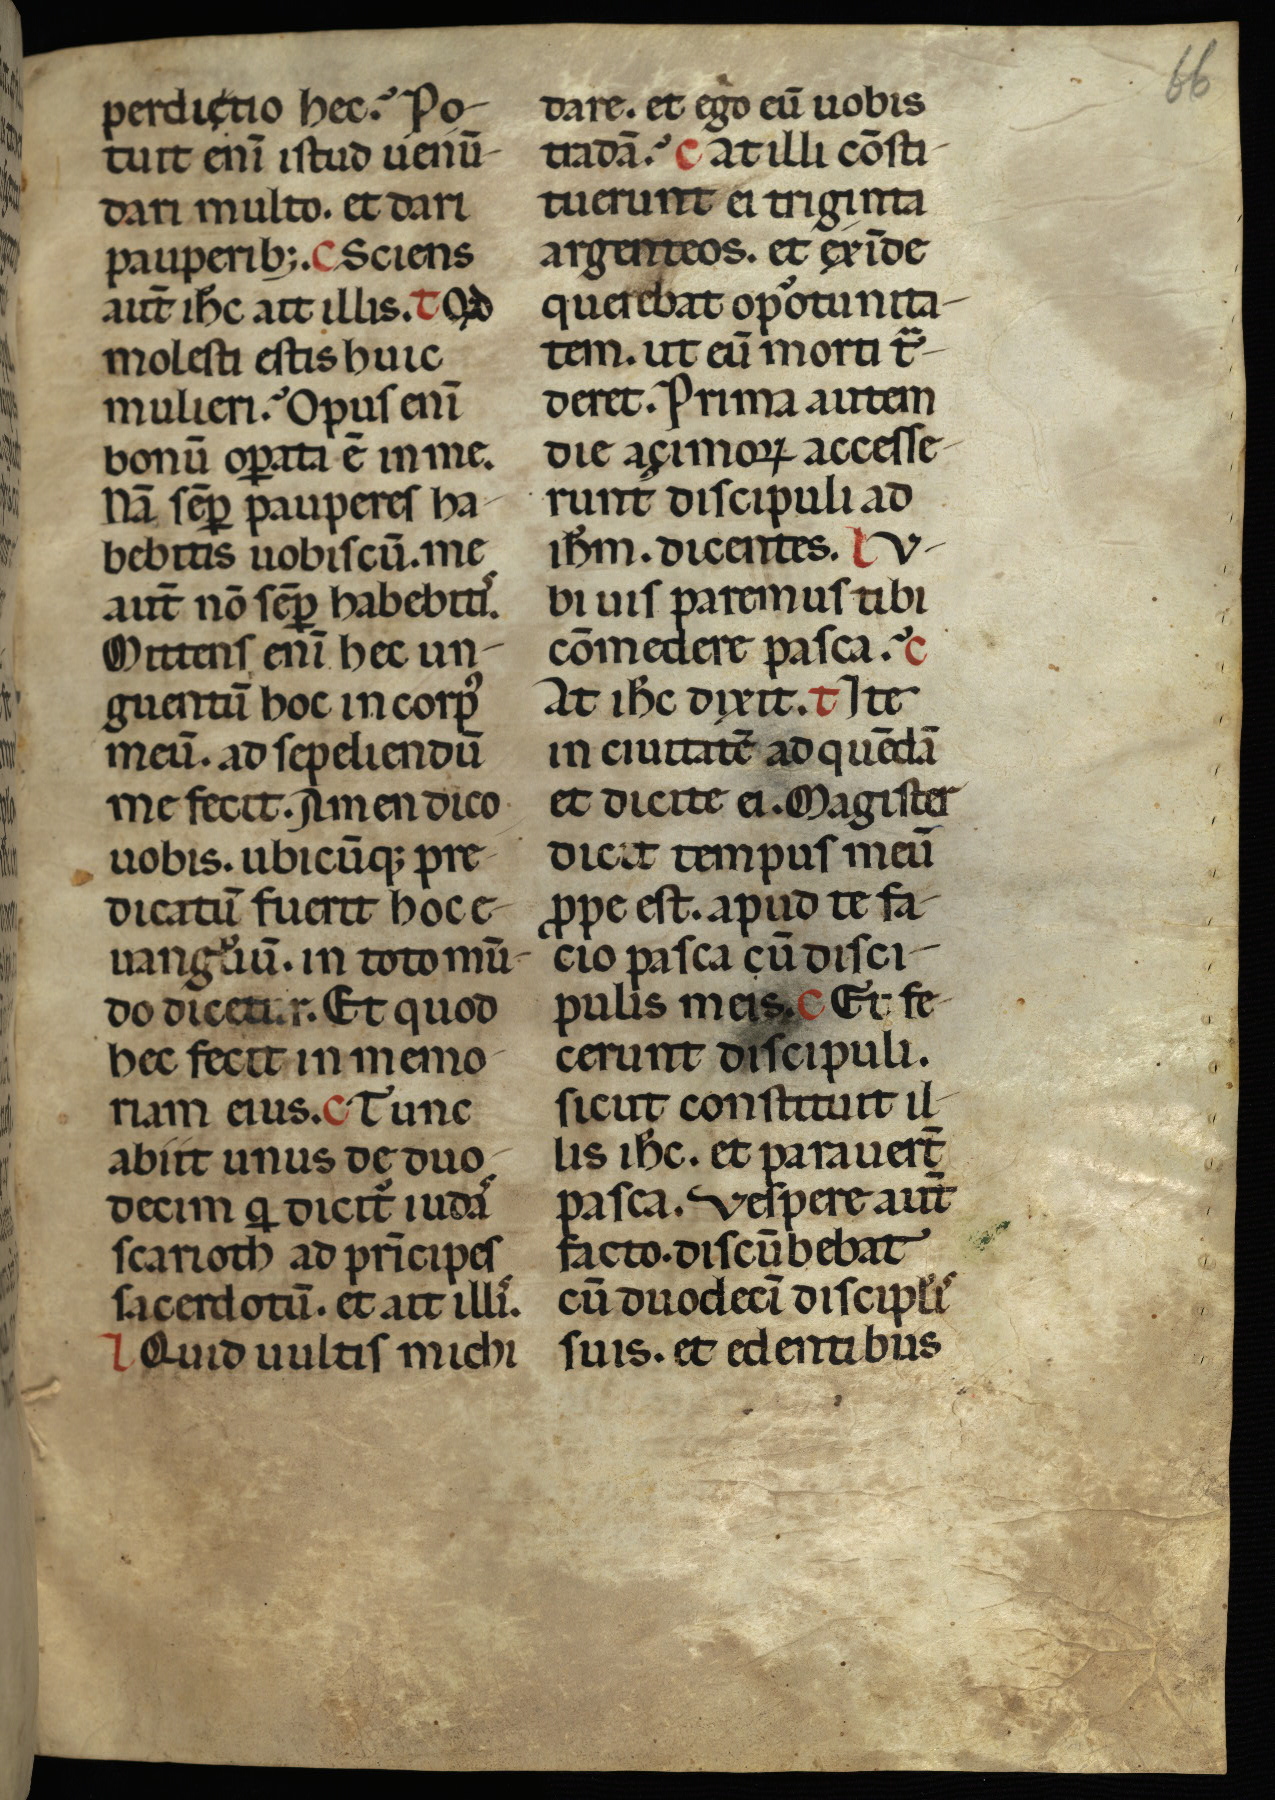 66
perdictio hec. Po-
tuit enī istud uenū-
dari multo. et dari
pauperib;. C Sciens
aut̄ ih̄c ait illis. t Qđ
molesti estis huic
mulieri. Opus enī
bonū oꝑata ē in me.
Nā sēꝑ pauperes ha-
bebitis uobiscū. me
aut̄ nō sēꝑ habebitis.
Mittens enī hec un-
guentū hoc in corpꝰ
meū. ad sepeliendū
me fecit. Amen dico
uobis. ubicūq; pre-
dicatū fuerit hoc e-
uangliū. in toto mū-
do dicetur. Et quod
hec fecit in memo-
riam eius. C Tunc
abiit unus de duo-
decim q dicit̄ iudas
scarioth ad prīcipes
sacerdotū. et ait illis.
l Quid uultis michi
dare. et ego eū uobis
tradā. C at illi cōsti-
tuerunt ei triginta
argenteos. et exīde
querebat opotunita-
tem. ut eū morti t̄-
deret. Prima autem
die açimoꝝ accesse-
runt discipuli ad
ih̄m. dicentes. l V-
bi uis paremus tibi
cōmedere pasca. C
At ih̄c dixit. t Ite
in ciuitatē ad quēdā
et dicite ei. Magister
dicit tempus meū
ꝓpe est. apud te fa-
cio pasca cū disci-
pulis meis. C Et fe-
cerunt discipuli.
sicut constituit il-
lis ih̄c. et parauert̄
pasca. Vespere aut̄
facto. discūbebat
cū duodecī disciplis
suis. et edentibus